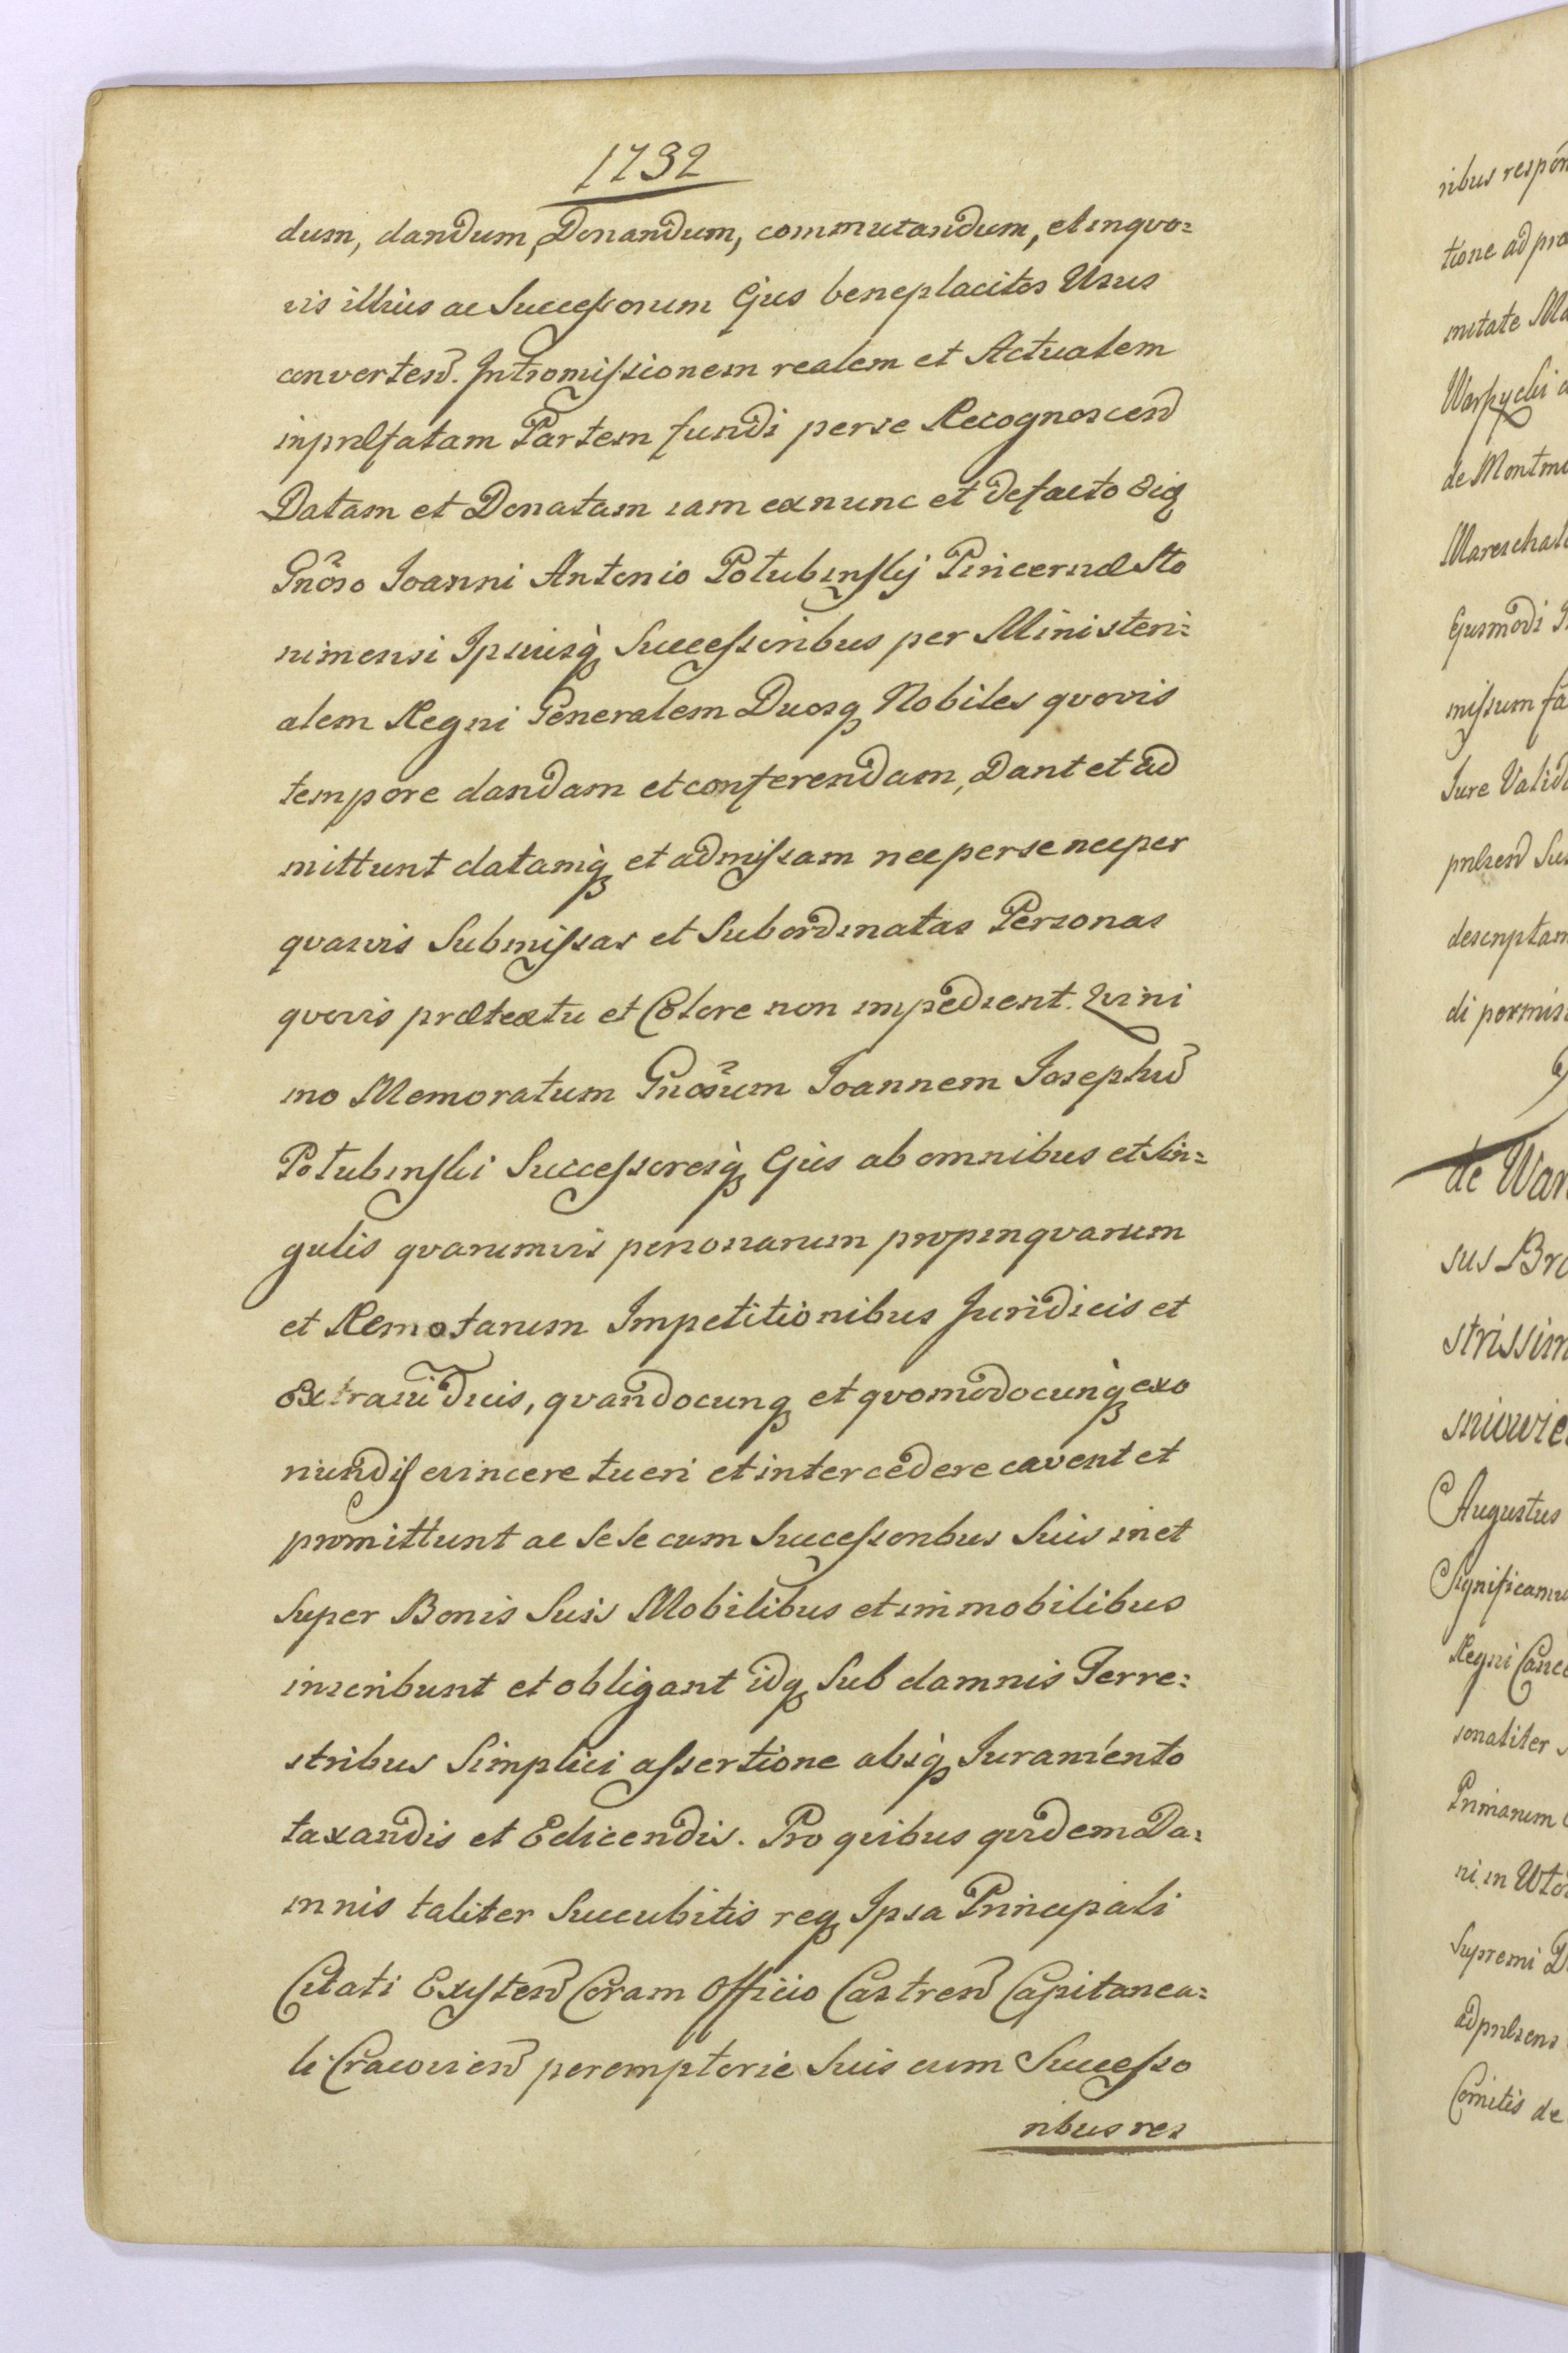 1732
dum, dandum, Donandum, commutandum, et inqvo=
vis illius ac Successorum Ejus beneplacitos Usus
convertend. Intromissionem realem et Actualem
in præfatam Partem fundi per se Recognoscend
Datam et Donatam iam ex nunc et de facto
Gnoso Joanni Antonio Potubinskij Pincernæ Sto
nimensi Ipsiusq Successoribus per Ministeri=
alem Regni Generalem Duosq Nobiles qvovis
tempore dandam et conferendam, Dant et ad
mittunt datamq et admissam nec per se nec per
qvasvis Submissas et Subordinatas Personas
qvovis prætextu et Colore non impedient. Qvini
mo Memoratum Gnosum Joannem Josephum
Potubinski Successoresq Ejus ab omnibus et Sin=
gulis qvarumvis personarum propinqvarum
et Remotarum Impetitionibus Juridicis et
extraiuridicis, qvandocunq et qvomodocunq exo
riundis evincere tueri et intercedere cavent et
promittunt ac Se Se cum Successoribus Suis in et
Super Bonis Suis Mobilibus et immobilibus
inscribunt et obligant idq Sub damnis Terre=
stribus Simplici assertione absq Juramento
taxandis et Edicendis. Pro qvibus qvidem Da=
mnis taliter Succubitis req Ipsa Principali
Citati Existend Coram Officio Castrend Capitanea=
li Cracoviend peremptorie Suis cum Successo
ribus res
ribus
tione ad
mitate
de
Ejusmodi
missum
Jure
di
de
sus
Augustus
Regni
sonaliter
ni in
Supremi
Comitis de